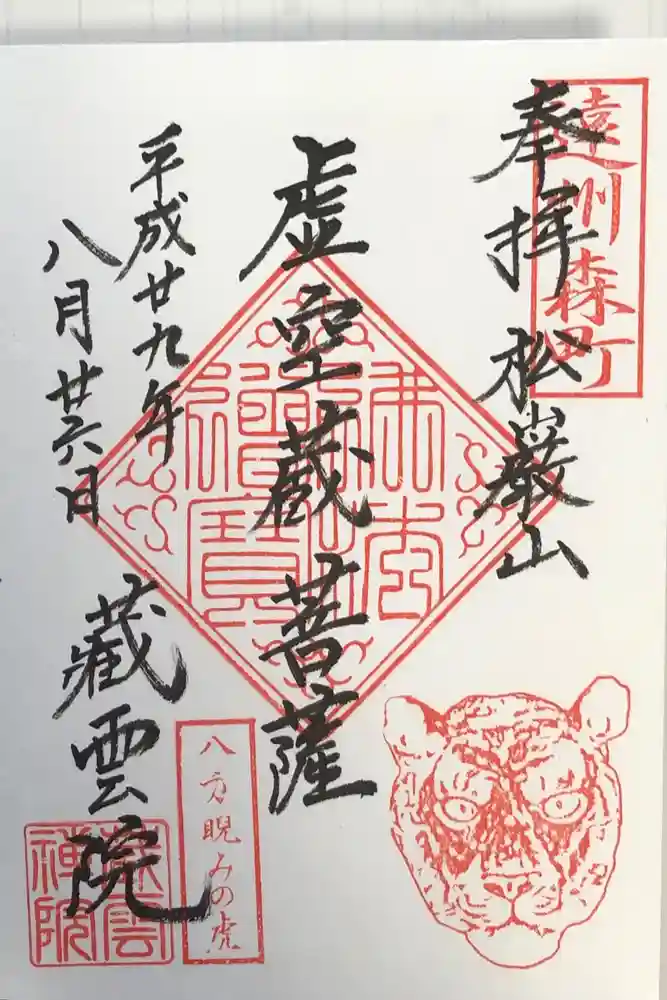 遠州森町
奉拝 松巖山
虚空蔵菩薩
平成廿九年
八月廿六日
藏雲院
八方睨みの虎
藏雲
禅院